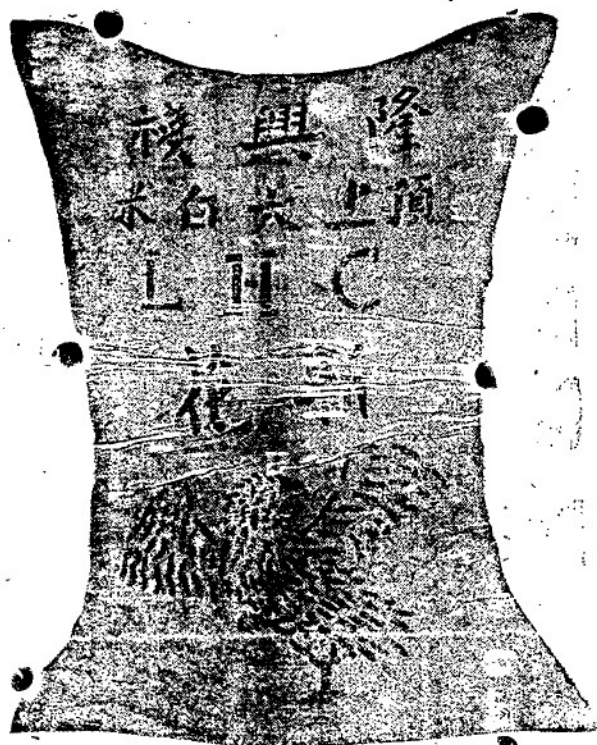 隆興棧
頂上六白米
L H C
花